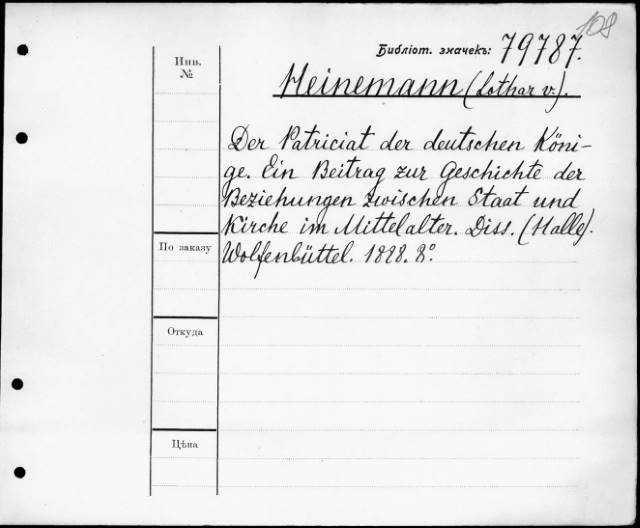 108
Библіот. значекъ: 79787.
Инв.
№
Heinemann (Lothar v.).
Der Patriciat der deutschen Köni-
ge. Ein Beitrag zur Geschichte der
Beziehungen zwischen Staat und
Kirche im Mittelalter. Diss. (Halle).
По заказу
Wolfenbüttel. 1888. 8°.
Откуда
Цѣна